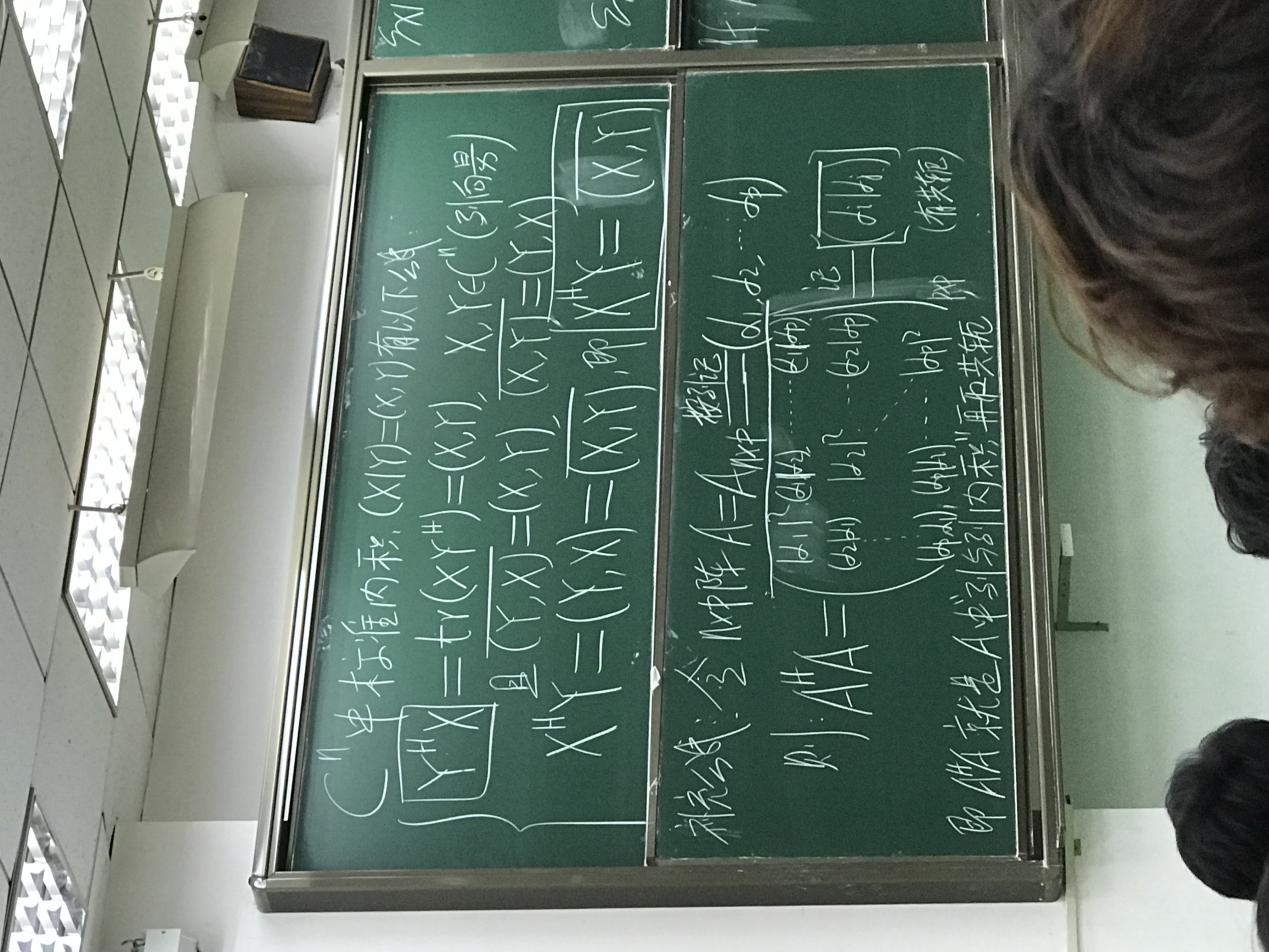 Cⁿ中标准内积, (X|Y)=(X,Y)有以下公式
YᴴX =tr(XYᴴ)=(X,Y), X,Y∈Cⁿ(列向量)
且 \overline{(Y,X)}=(X,Y), \overline{(X,Y)}=(Y,X)
XᴴY=(Y,X)=\overline{(X,Y)}, 即 XᴴY=\overline{(X,Y)}
补充公式: 令 n×p阵 A=Aₙₓₚ 按列记= (α₁,α₂,…αp)
则: AᴴA=
|α₁|² (α₁|α₂) …… (α₁|αp)
(α₂|α₁) |α₂|² … (α₂|αp)
(αp|α₁), (αp|α₂) … |αp|²
p×p
记= \overline{(αi|αj)}
(有共轭)
即 AᴴA 就是 A中列与列"内积"再取共轭